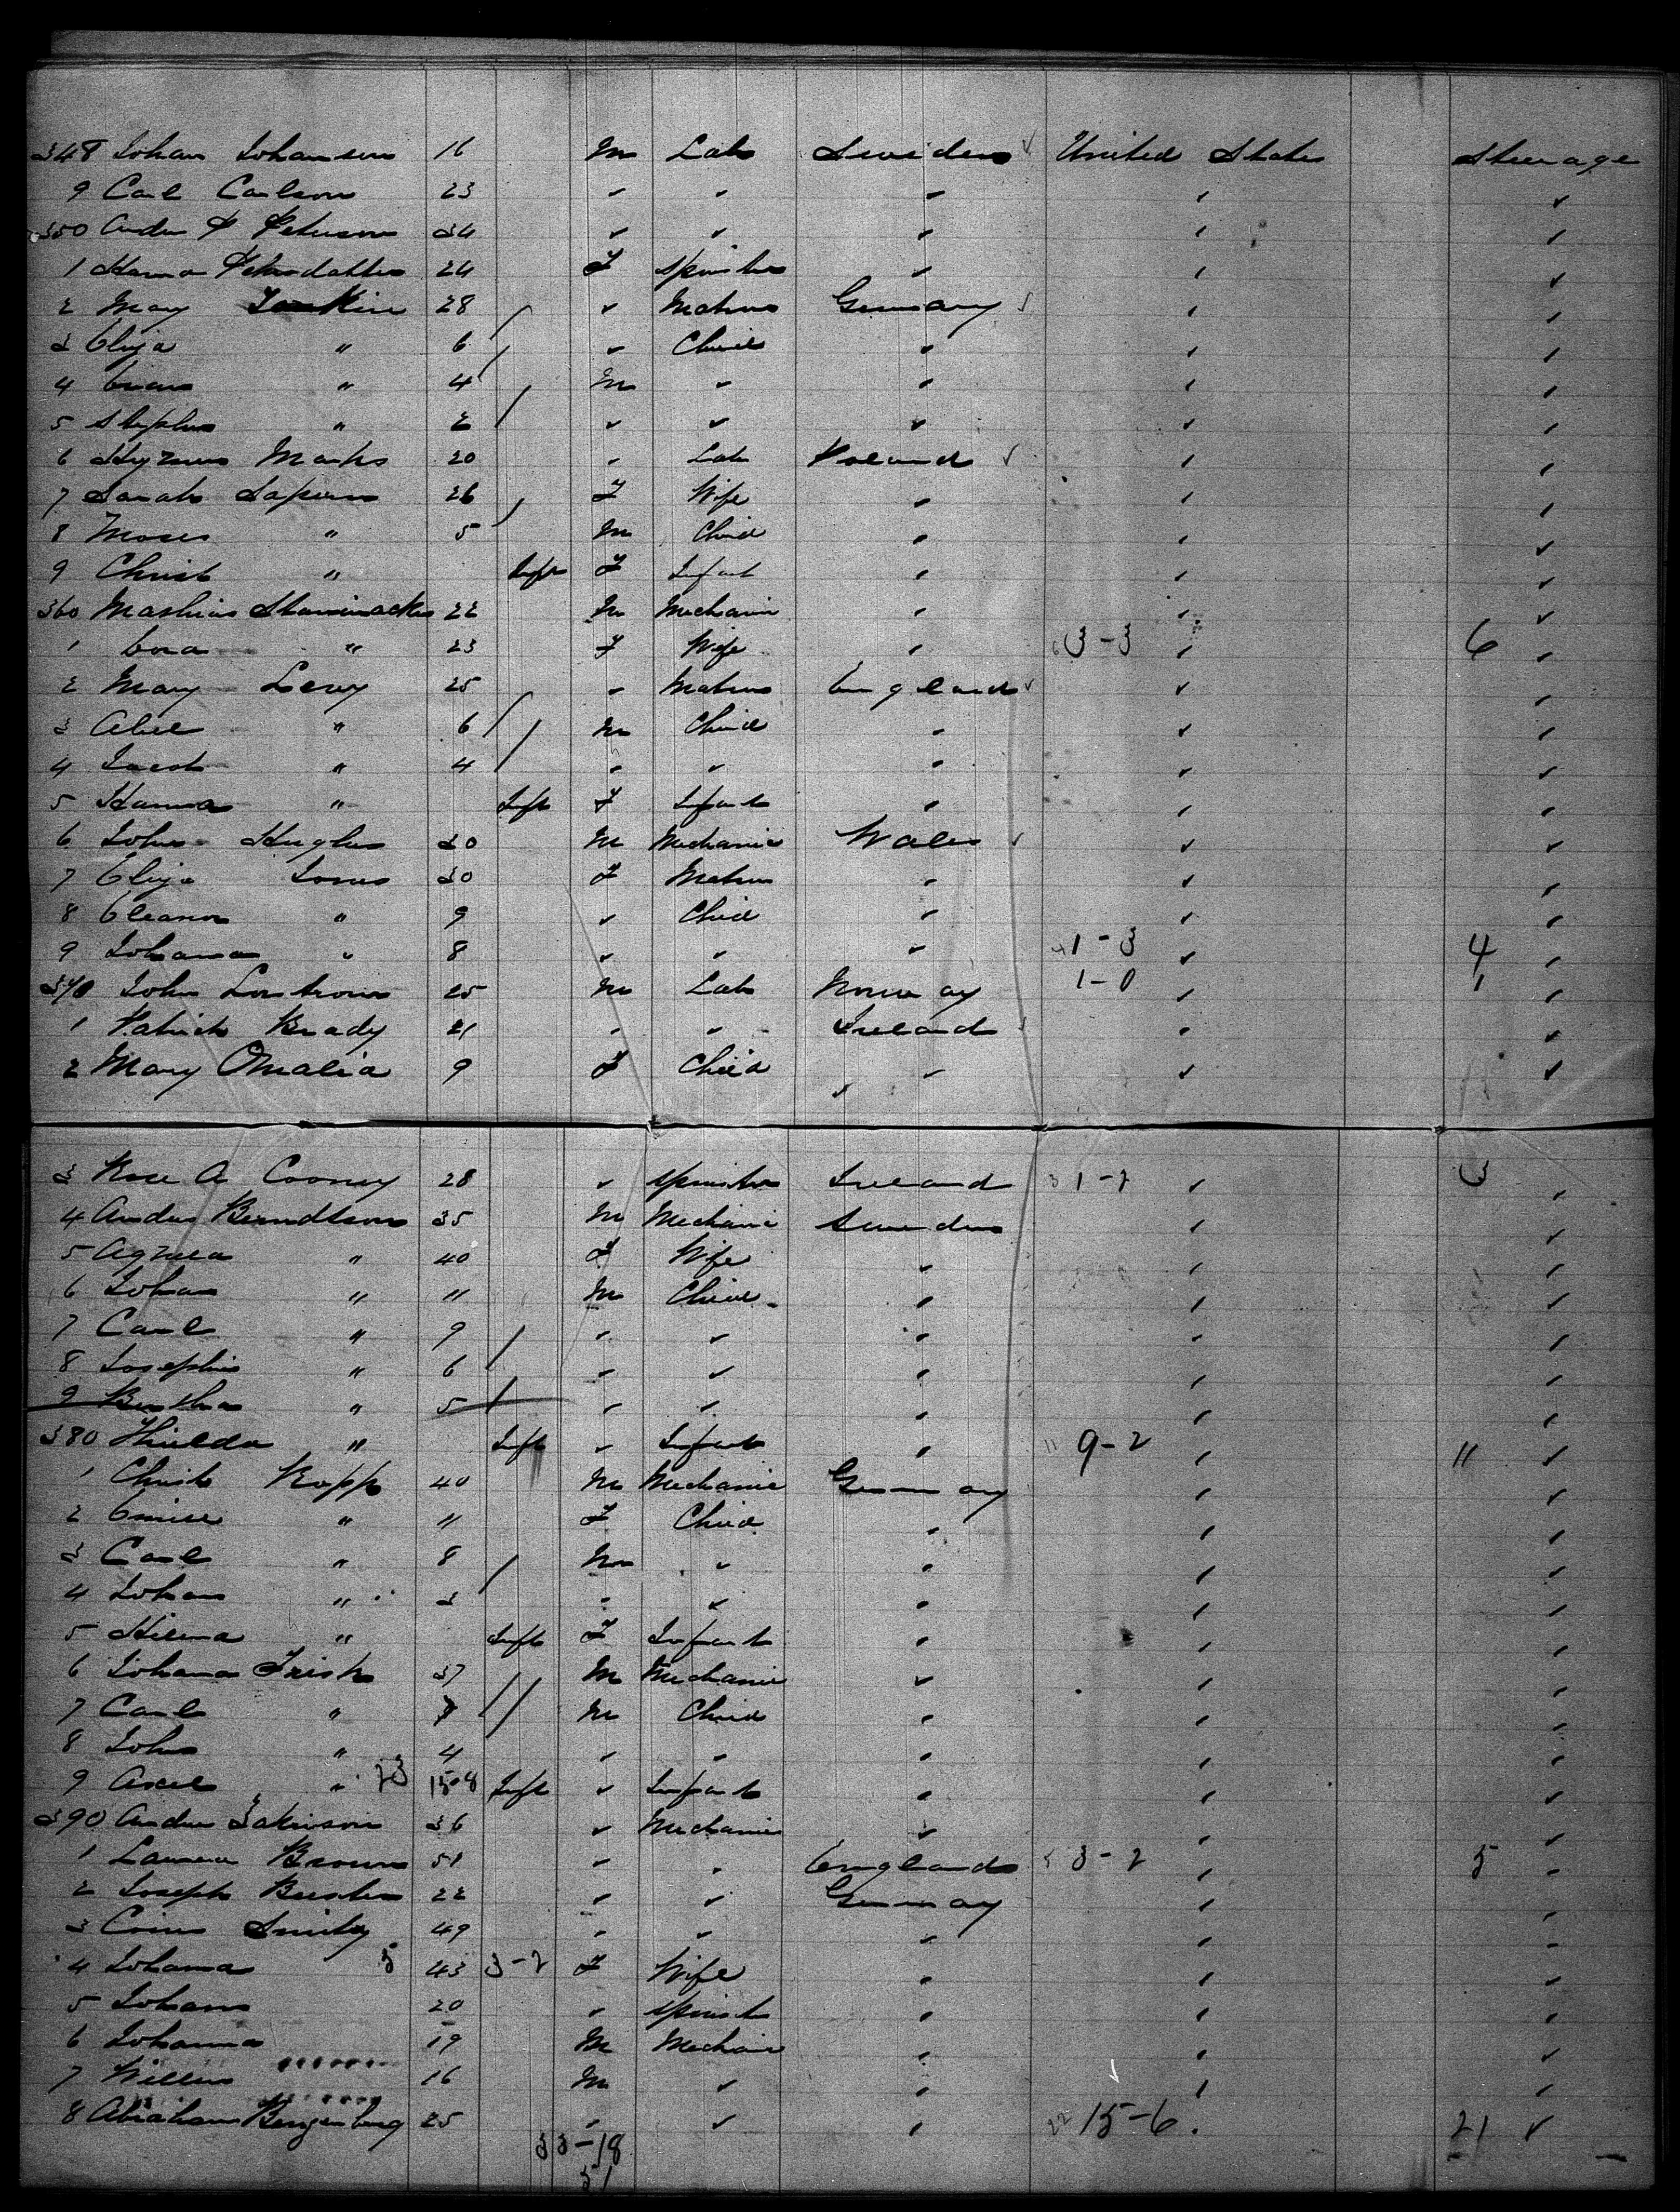 348 Johan Johansen 16 M Lab Sweden ✓ United States Steerage
9 Carl Carlson 23 " " " " "
350 Ander P Peterson 34 " " " " "
1 Hanna 24 F Spinster " " "
2 Mary 28 " Matron Germany ✓ " "
3 Eliza " 6 " Child " " "
4 " 4 M " " " "
5 Stephen " 2 " " " " "
6 Marks 20 " Lab Poland ✓ " "
7 Sarah 26 F Wife " " "
8 Moses " 5 M Child " " "
9 Christ " Inft F Infant " " "
360 Mathias 22 M Mechanic " " "
1 Cora " 23 F Wife " 3-3 " 6 "
2 Mary Levy 25 " Matron England ✓ " "
3 Abel " 6 M Child " " "
4 Jacob " 4 " " " " "
5 Hanna " Inft F Infant " " "
6 John Hughes 30 M Mechanic Wales ✓ " "
7 Eliza Jones 30 F Matron " " "
8 Eleanor " 9 " Child " " "
9 Johanna " 8 " " " 1-3 " 4 "
370 John 25 M Lab Norway 1-0 " 1 "
1 Patrick Brady 21 " " Ireland ✓ " "
2 Mary Omalia 9 F Child " " "
3 Rose A Cooney 28 " Spinster Ireland 3 1-2 " 3 "
4 Andus Berndtson 35 M Mechanic Sweden " "
5 40 F Wife " " "
6 Johan " 11 M Child " " "
7 Carl " 9 " " " " "
8 Josephine " 6 " " " " "
9 Bertha " 5 " " " " "
380 Hulda " Inft " Infant " 11 9-2 " 11 "
1 Christ Kopp 40 M Mechanic Germany " "
2 " 11 F Child " " "
3 Carl " 8 M " " " "
4 Johan " 3 " " " " "
5 Hilma " Inft F Infant " " "
6 Johana Frish 37 M Mechanic " " "
7 Carl " 7 M Child " " "
8 John " 4 " " " " "
9 Axel " 23 15-8 Inft " Infant " " "
390 Andrew 36 " Mechanic " " "
1 Brown 51 " " England 5 3-2 " 5 "
2 Joseph 22 " " Germany " "
3 49 " " " " "
4 Johanna 5 43 3-2 F Wife " " "
5 Johan 20 " Spinster " " "
6 Johanna 19 M Mechanic " " "
7 16 M " " " "
8 Abraham 25 " " " 22 15-6 21 "
33-18
51